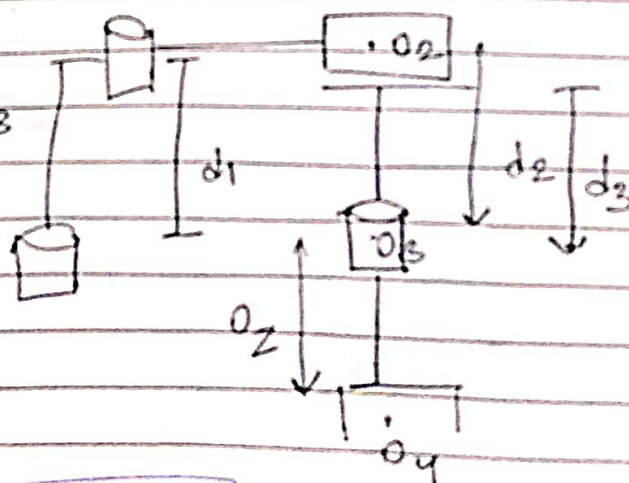 O2
3
d1
d2
d3
O3
OZ
O4